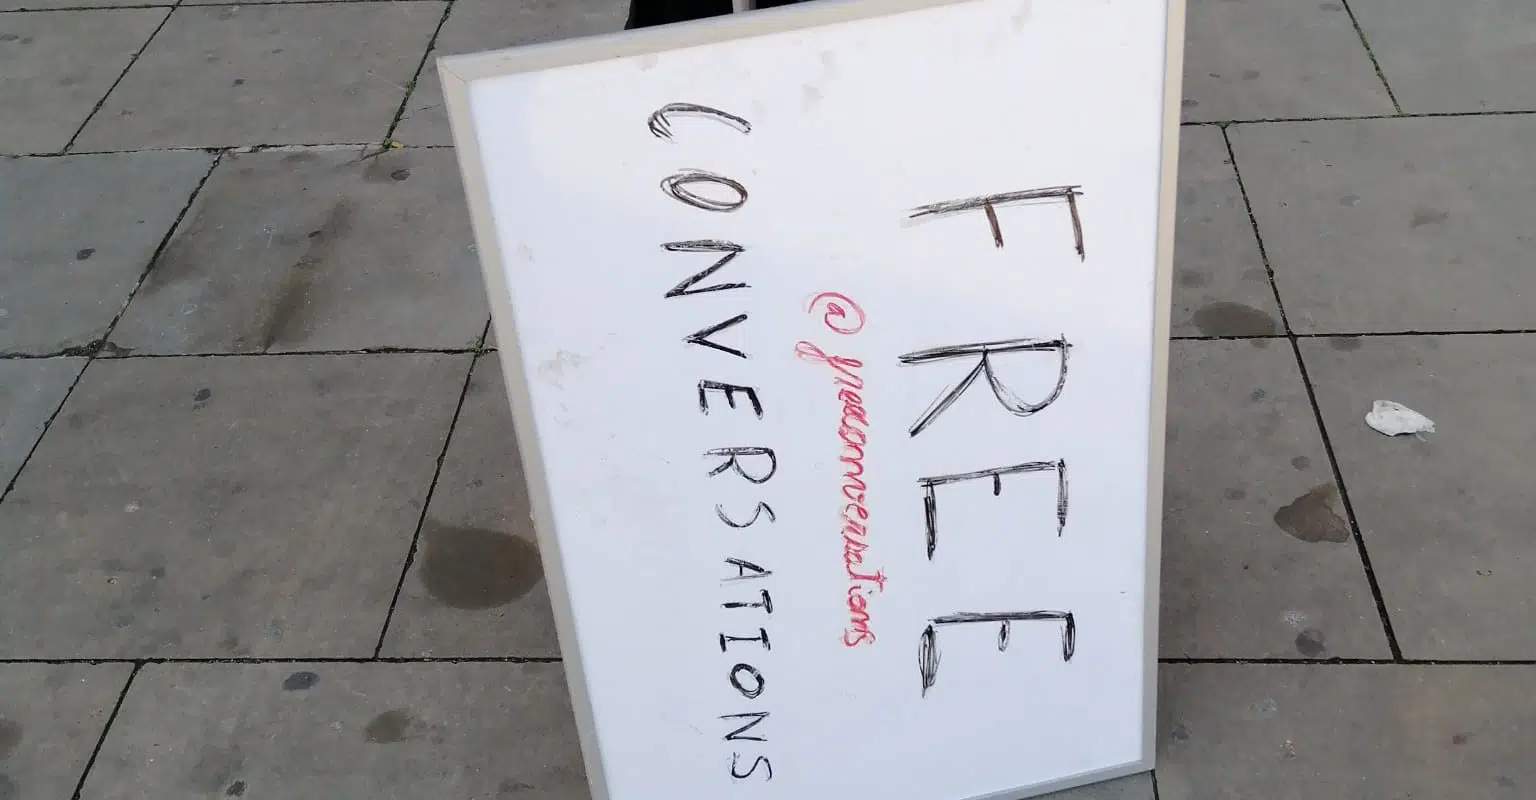 FREE
@freeconversations
CONVERSATIONS